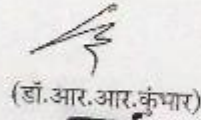 (डॉ.आर.आर.कुंभार)